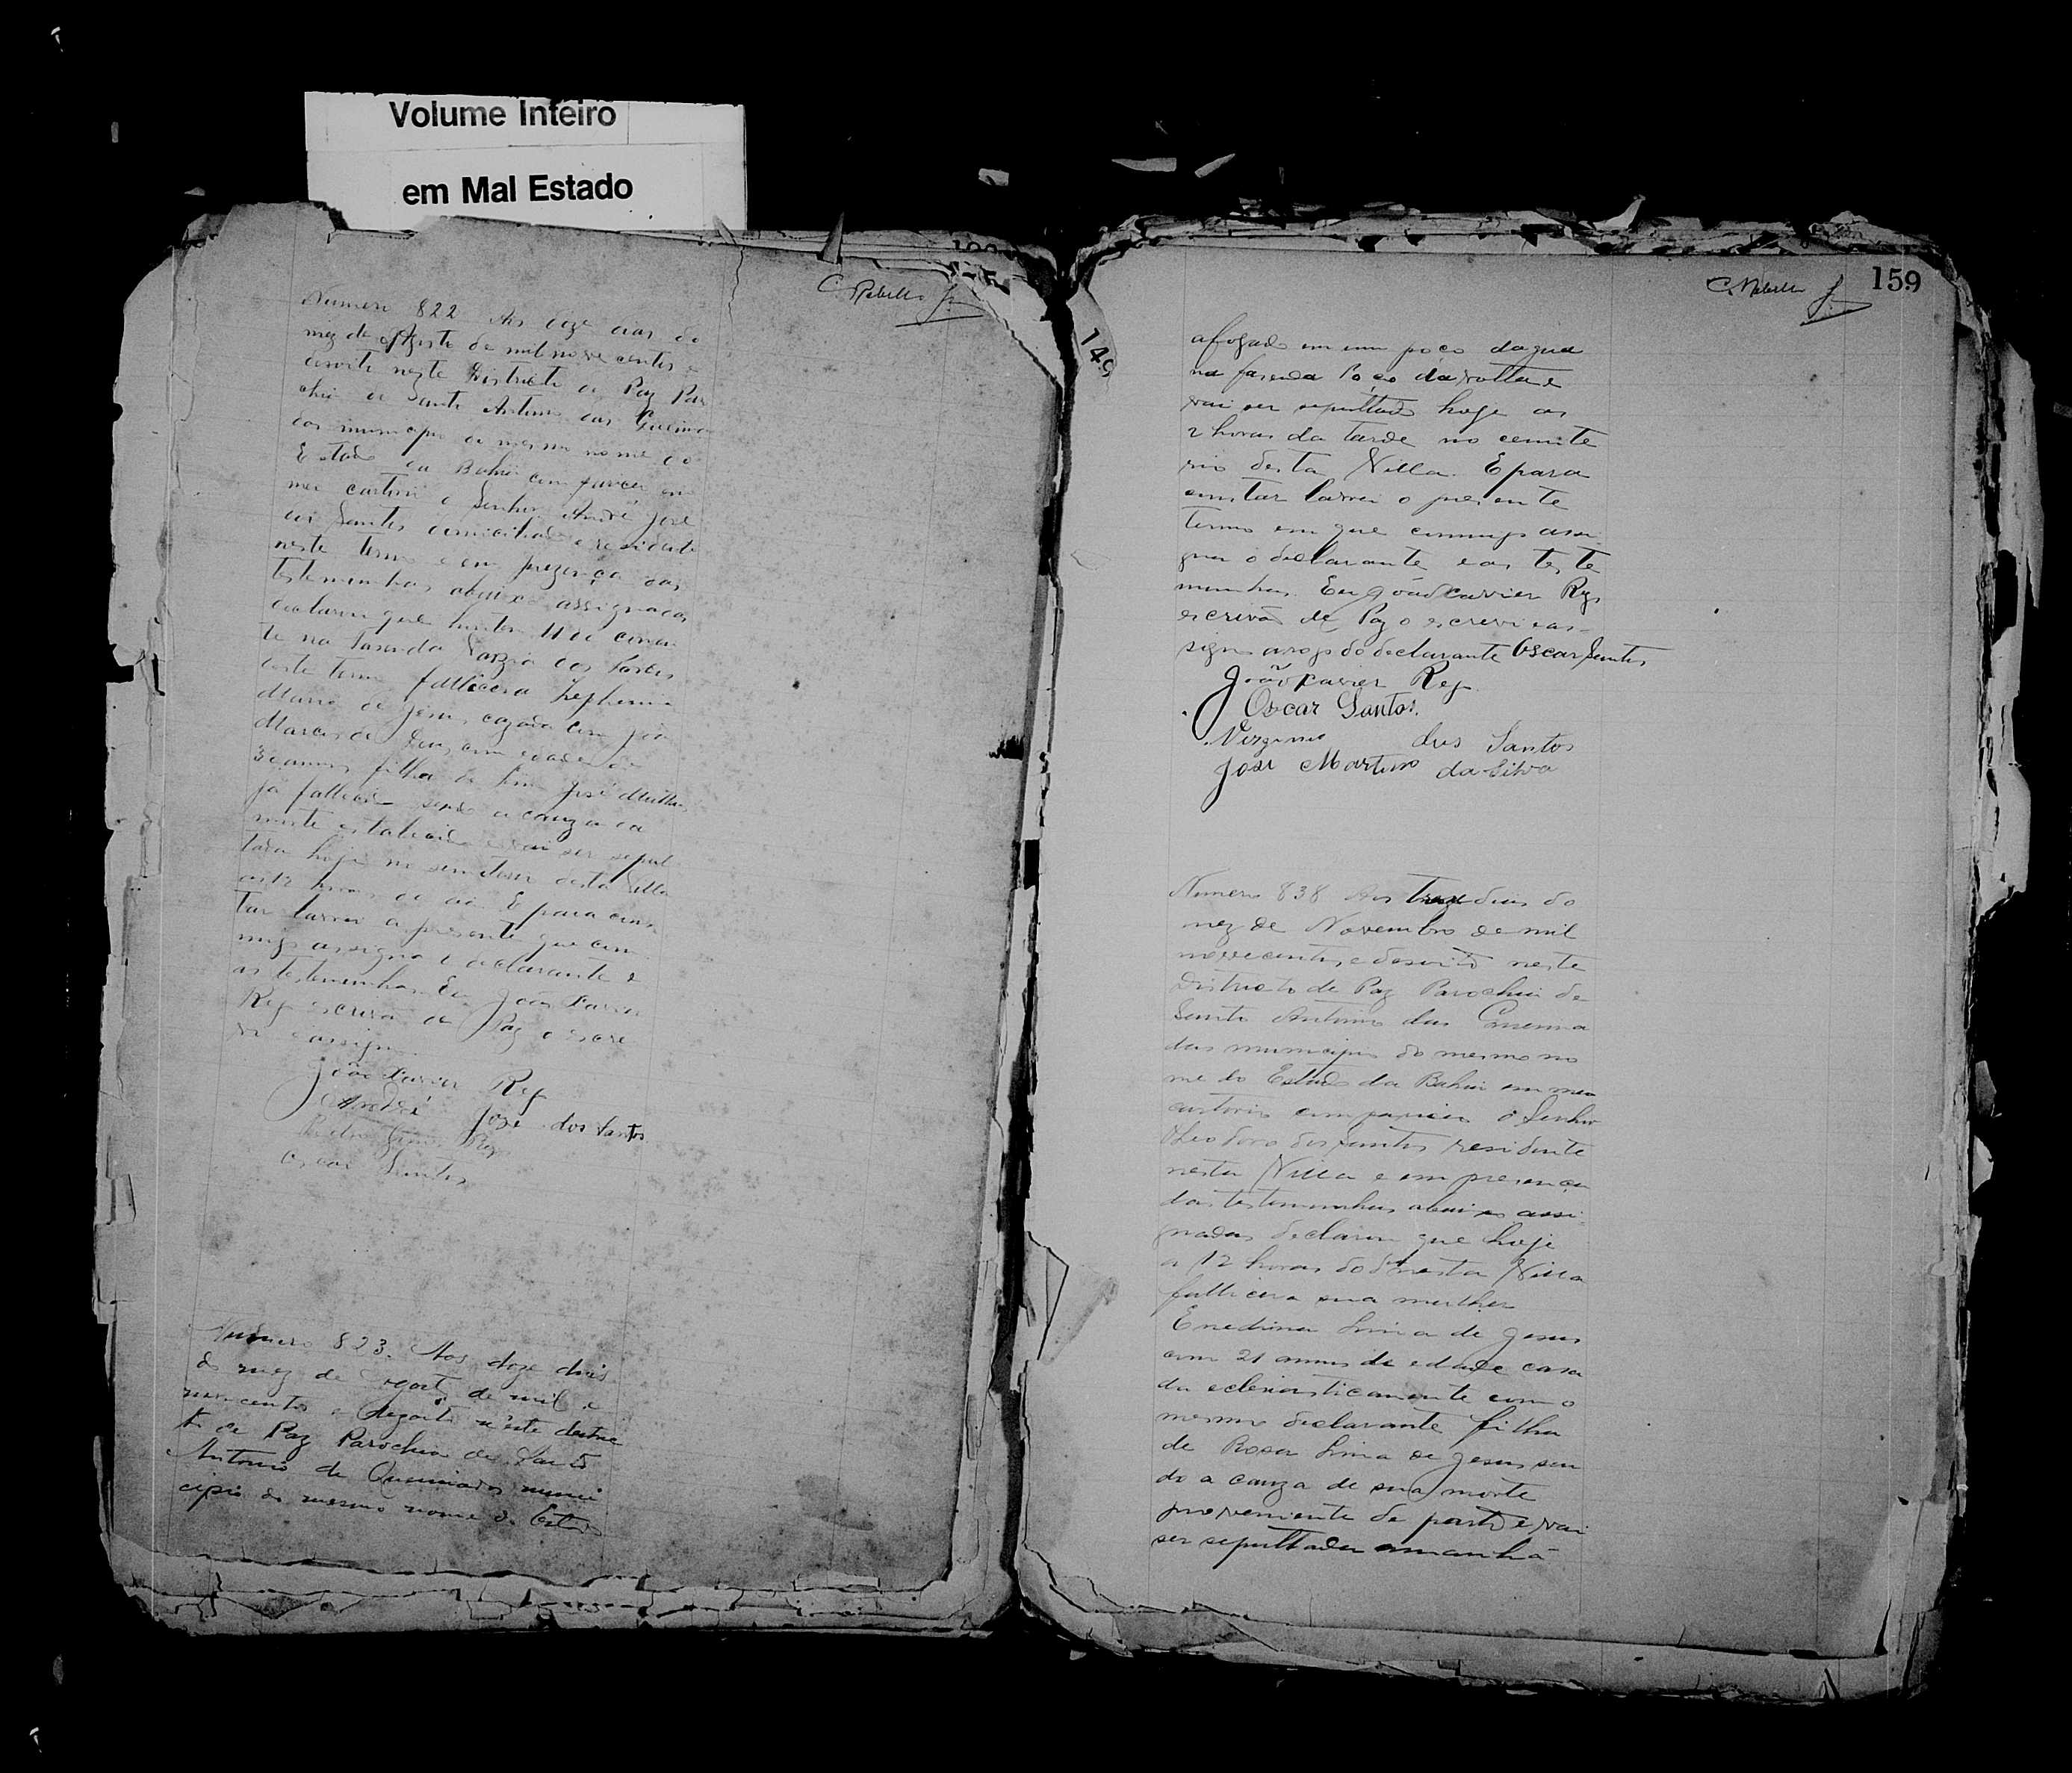 Volume Inteiro
em Mal Estado
C. Rebello Jr
Numero 822 Aos doze dias do
mez de Agosto de mil nove centos e
desoito neste Districto de Paz Paro
chia de Santo Antonio das Queima
das municipio do mesmo nome do
Estado da Bahia compareceu em
meu cartorio o Senhor André José
dos Santos domiciliado e residente
neste termo e em prezença das
testemunhas abaixo assignadas
declarou que hontem 11 do corren
te na fasenda Varzia dos
deste termo fallecera Zepherina
Maria de Jesus cazada com
Marcos de com edade de
30 annos filha de José
já fallecido sendo a cauza da
morte e vai ser sepul
tada hoje no semiterio desta Villa
as 12 horas do dia E para cons
tar lavrei a presente que com
migo assigna o declarante e
as testemunhas Eu João Xavier
Rey escrivão de Paz o escre
vi e assigno.
João Xavier Rey
André José dos Santos
Rey
Oscar Santos
Numero 823. Aos doze dias
do mez de Agosto de mil e
novecentos e dezoito n'este destric
to de Paz Parochia de Santo
Antonio de Queimados muni
cipio do mesmo nome do Estado
149
C. Rebello Jr
159
afogado em um poço dagua
na fasenda Poço da volta e
vai ser sepultado hoje as
2 horas da tarde no cemite
rio desta Villa. E para
constar lavrei o presente
termo em que commigo assi
gna o declarante e as teste
munhas. Eu João Xavier Rey
escrivão de Paz o escrevi e as-
signo arogo do declarante Oscar Santos
João Xavier Rey
Oscar Santos.
Virginio dos Santos
José Martins da Silva
Numero 838 Aos treze dias do
mez de Novembro de mil
novecentos e desoito neste
Districto de Paz Parochia de
Santo Antonio das Queima
das municipio do mesmo no
me do Estado da Bahia em meu
cartorio compareceu o Senhor
Theodoro dos Santos residente
nesta Villa e em presença
das testemunhas abaixo assi-
gnadas declarou que hoje
a 12 horas do dia nesta Villa
fallicera sua mulher
Enedina Lima de Jesus
com 21 annos de edade casa
da eclesiasticamente com o
mesmo declarante filha
de Rosa Lima de Jesus sen
do a cauza de sua morte
proveniente de parto e vai
ser sepultada amanhã